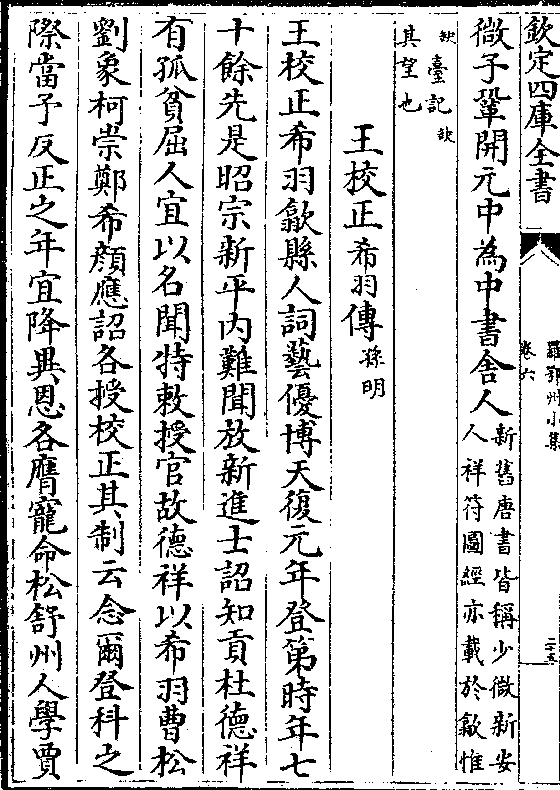 欽定四庫全書
羅鄂州小集
卷六
二十五
微子鞏開元中為中書舍人新舊唐書皆稱少微新安
人祥符圖經亦載於歙惟
缺臺記缺
其望也
王校正希羽傳孫明
王校正希羽歙縣人詞藝優博天復元年登第時年七
十餘先是昭宗新平内難聞放新進士詔知貢杜德祥
有孤貧屈人宜以名聞特敕授官故德祥以希羽曹松
劉象柯崇鄭希顔應詔各授校正其制云念爾登科之
際當予反正之年宜降異恩各膺寵命松舒州人學賈